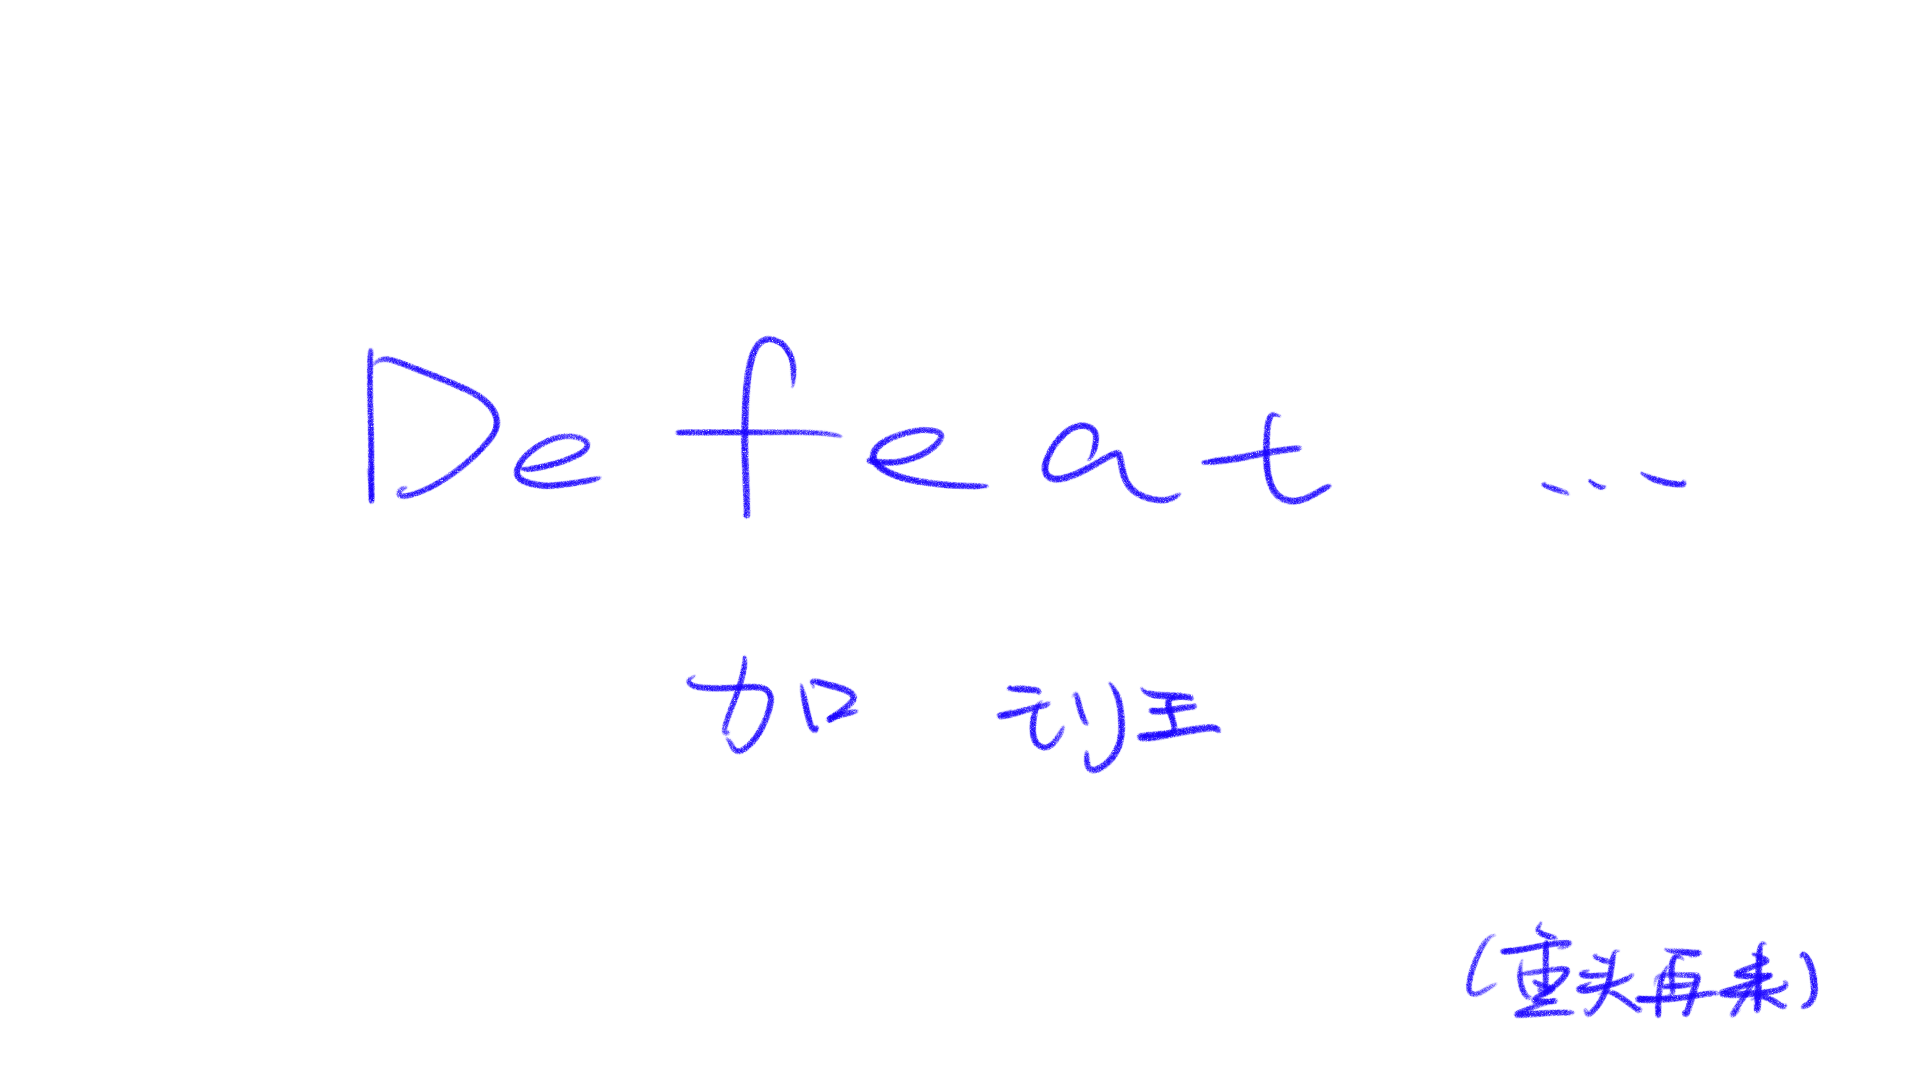 Defeat ...
加
(重头再来)